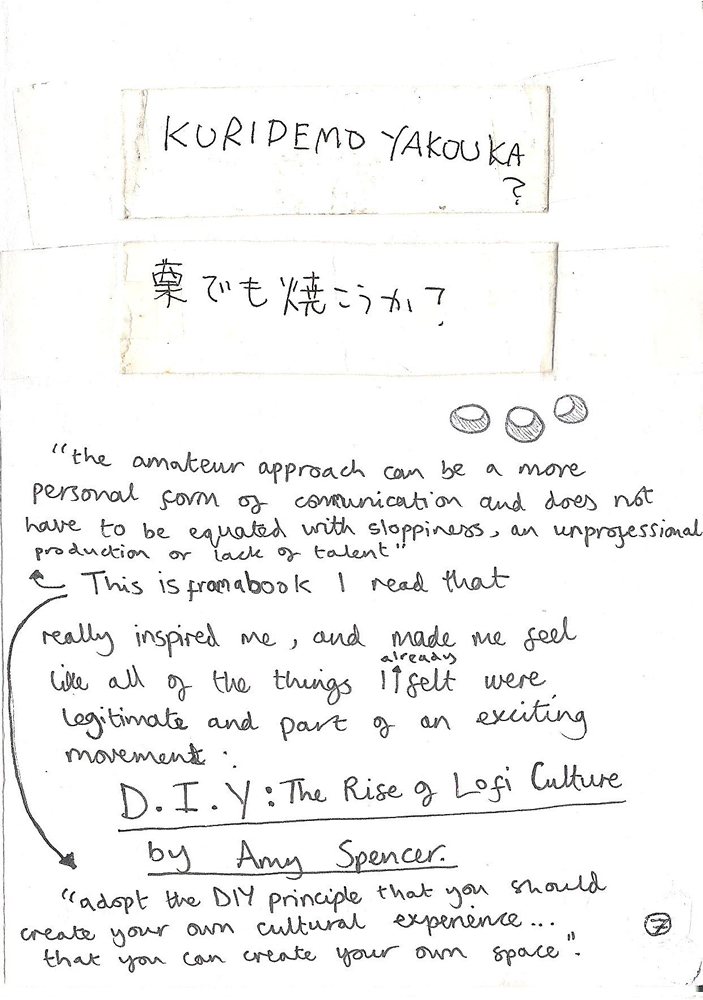 KURIDEMO YAKOUKA
?
栗でも焼こうか?
"the amateur approach can be a more
personal form of communication and does not
have to be equated with sloppiness, an unprofessional
production or lack of talent"
This is from a book I read that
really inspired me, and made me feel
already
like all of the things I felt were
legitimate and part of an exciting
movement:
D.I.Y: The Rise of Lofi Culture
by Amy Spencer.
"adopt the DIY principle that you should
create your own cultural experience...
that you can create your own space".
7